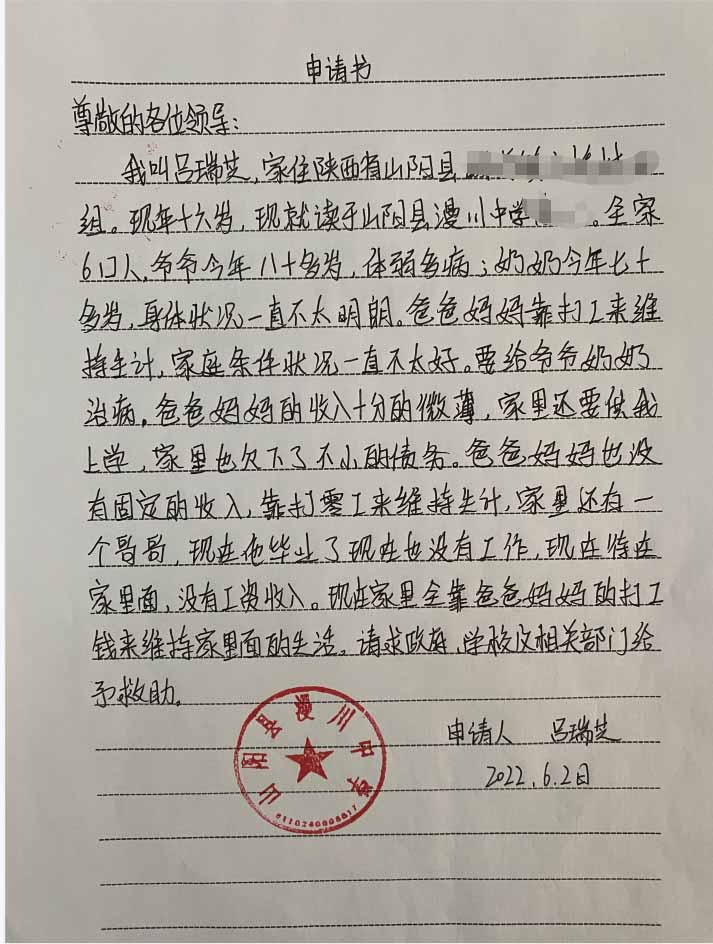 申请书
尊敬的各位领导:
我叫吕瑞芝,家住陕西省山阳县
组。现年十六岁,现就读于山阳县漫川中学 。全家
6口人,爷爷今年八十多岁,体弱多病;奶奶今年七十
多岁,身体状况一直不太明朗。爸爸妈妈靠打工来维
持生计,家庭条件状况一直不太好。要给爷爷奶奶
治病,爸爸妈妈的收入十分的微薄,家里还要供我
上学,家里也欠下了不小的债务。爸爸妈妈也没
有固定的收入,靠打零工来维持生计,家里还有一
个哥哥,现在他毕业了现在也没有工作,现在待在
家里面,没有工资收入。现在家里全靠爸爸妈妈的打工
钱来维持家里面的生活。请求政府,学校及相关部门给
予救助。
山阳县漫川中学
申请人 吕瑞芝
2022.6.2日